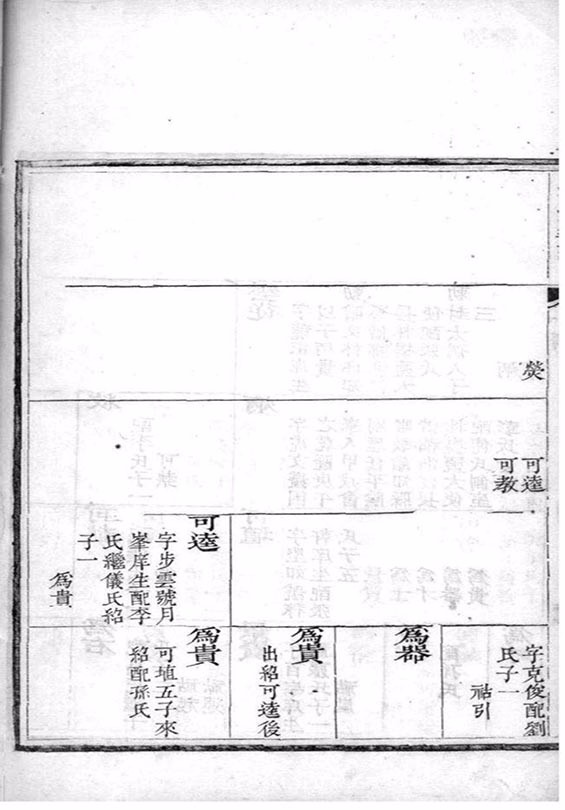 煐
可逵
可教
可逵
字步雲號月
峯庠生配李
氏繼儀氏紹
子一
爲貴
字克俊配劉
氏子一
祜引
爲器
爲貴
出紹可逵後
爲貴
可埴五子來
紹配孫氏